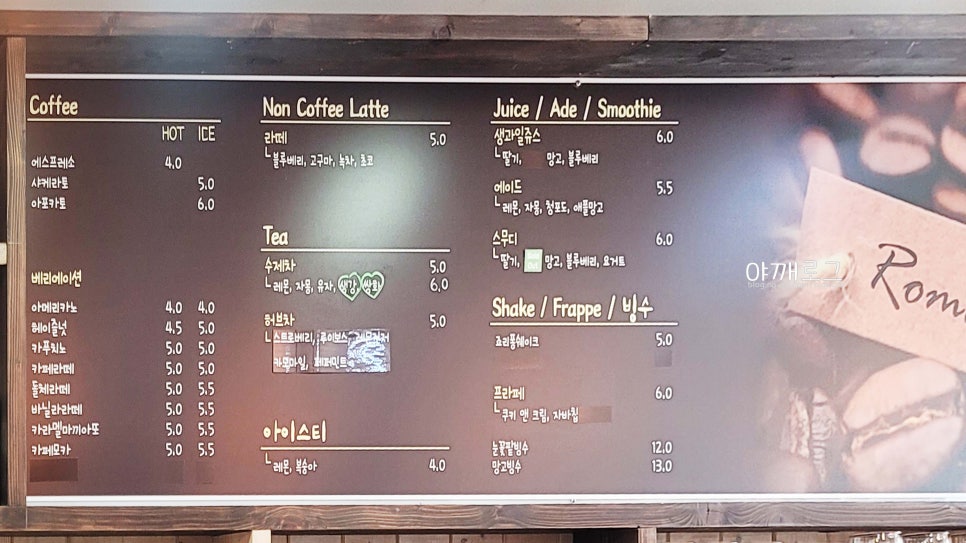 Coffee
HOT ICE
에스프레소 4.0
샤케라토 5.0
아포카토 6.0
베리에이션
아메리카노 4.0 4.0
헤이즐넛 4.5 5.0
카푸치노 5.0 5.0
카페라떼 5.0 5.0
돌체라떼 5.0 5.5
바닐라라떼 5.0 5.5
카라멜마끼아또 5.0 5.5
카페모카 5.0 5.5
Non Coffee Latte
라떼 5.0
└ 블루베리, 고구마, 녹차, 초코
Tea
수제차 5.0
└ 레몬, 자몽, 유자, 생강 쌍화 6.0
허브차 5.0
└ 스트로베리, 루이보스,
카모마일, 페퍼민트
아이스티
└ 레몬, 복숭아 4.0
Juice / Ade / Smoothie
생과일쥬스 6.0
└ 딸기, 망고, 블루베리
에이드 5.5
└ 레몬, 자몽, 청포도, 애플망고
스무디 6.0
└ 딸기, 망고, 블루베리, 요거트
Shake / Frappe / 빙수
죠리퐁쉐이크 5.0
프라페 6.0
└ 쿠키 앤 크림, 자바칩
눈꽃팥빙수 12.0
망고빙수 13.0
야깨로그
Rom